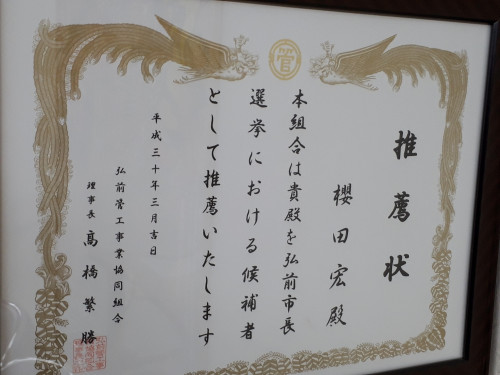 管
推薦状
櫻田宏殿
本組合は貴殿を弘前市長
選挙における候補者
として推薦いたします
平成三十年三月吉日
弘前管工事業協同組合
理事長 高橋繁勝